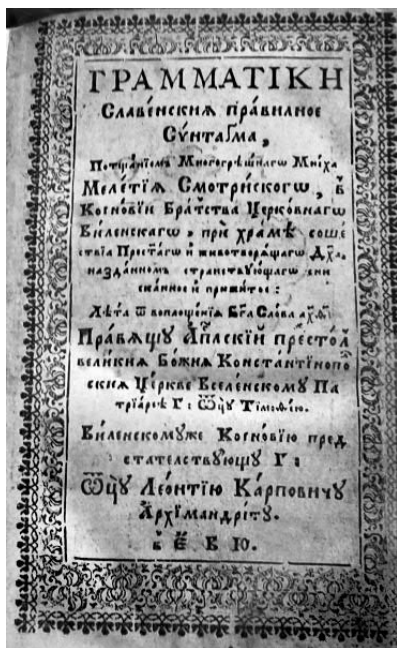 ГРАММАТІКИ
Славе́нскиѧ пра́вилное
Сѵ́нтаґма,
Потщанїемъ Многогрѣшнагѡ Мни́ха
Меле́тїѧ Смотри́скогѡ, в̾
Коено́вїи Бра́тства Церко́внагѡ
Ви́ленскагѡ, при́ хра́мѣ соше
ствїѧ Прест҃агѡ и҆ животворѧ́щагѡ Дх҃а,
назда́нномъ странствꙋ́ющагѡ
сканное и҆ прижи́тое:
Лѣ́та ѿ воплоще́нїѧ Бг҃а Сло́ва
Пра́вѧщꙋ А҆пⷭ҇лскїй пре́стол
вели́киѧ Бо́жїѧ Конста́нтїнопо
скиѧ Це́ркве Вселе́нскомꙋ Па
трїа́рсѣ Г: Ѿц҃ꙋ Тімоѳе́ю.
Ви́ленскомꙋже Коено́вїю пред
ста́телствꙋющꙋ Г:
Ѿц҃ꙋ Лео́нтїю Ка́рповичꙋ
А҆рхїмандрі́тꙋ.